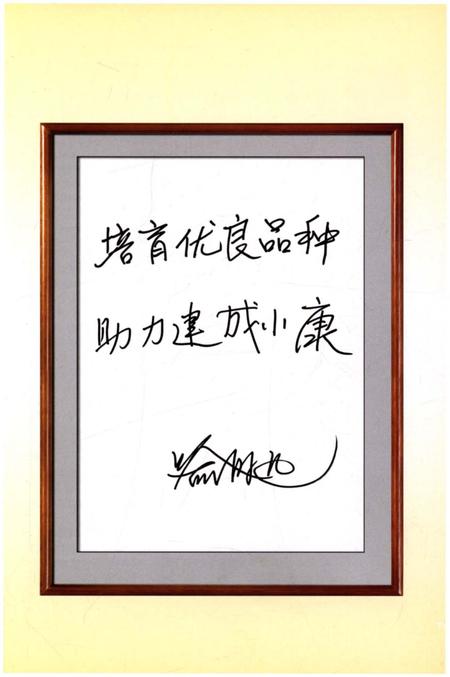 培育优良品种
助力建成小康